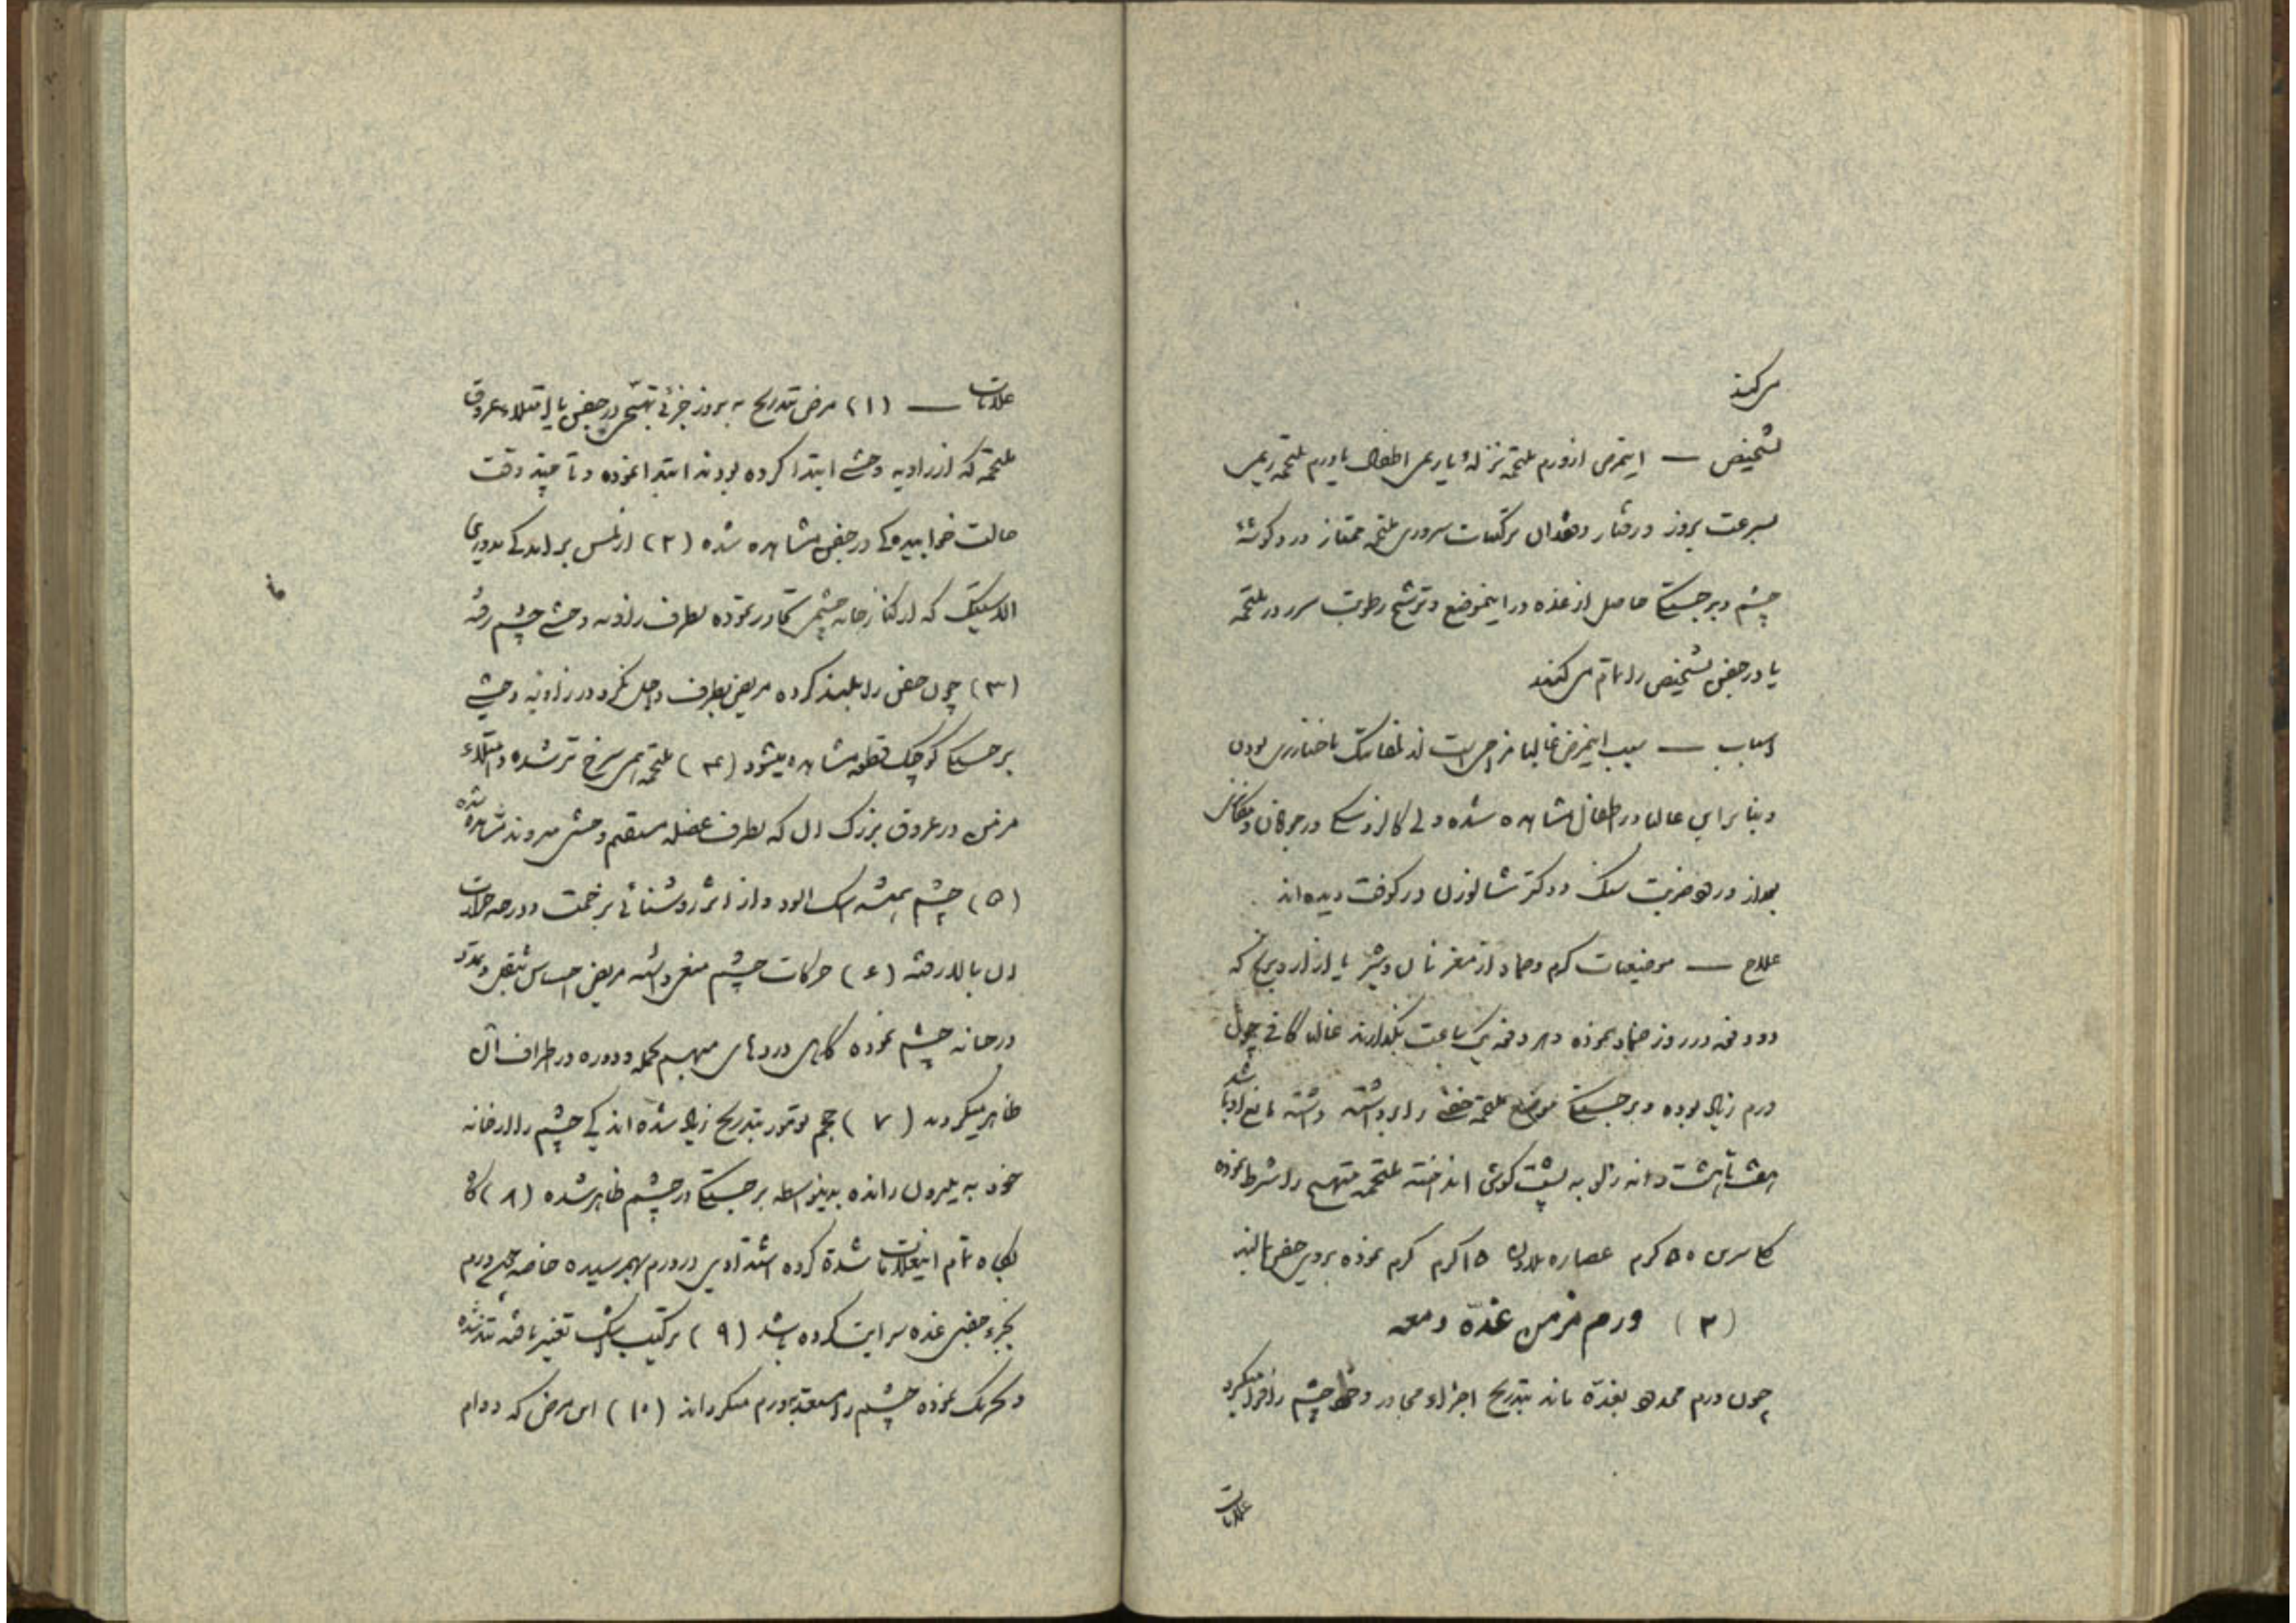 می‌کند
تشخیص — اینمرض از ورم ملتحمه نزله یا رمد اطفال یا ورم ملتحمه ریمی
بسرعت بروز و رفتار و فقدان ترکیبات سروری ملتحمه ممتاز درد گوشهٔ
چشم و برجستگی حاصل از غده در اینموضع و ترشح رطوبت در ملتحمه
یا در جفن تشخیص را تمام می‌کنند
اسباب — سبب اینمرض غالبا مزاجی است لنفاتیک یا خنازیری بودن
و بنابراین غالبا در اطفال مشاهده شده ولی گالزوسکی در جوانان و
در ضربت سنگ و دکتر شالوزن در کوفت دیده‌اند
علاج — موضعیات گرم و ضماد از مغز نان و شیر یا از ارد برنج که
دو دفعه در روز ضماد نموده و هر دفعه یک ساعت بگذارند غالبا کافی چون
ورم زیاد بوده و برجستگی موضع ملتحمه جفنی را برداشته مانع
هفت تا هشت دانه زالو به پشت گوش انداخته ملتحمه متهیج را شرط نموده
گلیسرین ۵۰ کرم عصاره بلادن ۱۵ کرم کرم نموده بروی جفن بمالند
(۳) ورم مزمن غدّه دمعه
چون ورم محدود بغدّه ماند بتدریج اجزاء مجاور و خط چشم را فرا میگیرد
علامات
علامات — (۱) مرض بتدریج به بروز جزئی تهیّجی در جفن با امتلاء عروق
ملتحمه که از زاویه وحشی ابتدا کرده بودند ابتدا نموده و تا چند وقت
حالت خوابیدگی در جفن مشاهده شده (۲) از لمس برامدگی مدوری
الاستیک که از کنار خانه چشمی تجاوز نموده بطرف زاویه وحشی چشم رفته
(۳) چون جفن را بلند کرده مریض بطرف داخل نگرد در زاویه وحشی
برجستگی کوچک مشاهده میشود (۴) ملتحمه سرخ تر شده و امتلاء
مرضی در عروق بزرگ ان که بطرف عضله مستقیم وحشی میروند مشاهده شده
(۵) چشم همیشه اشک الود و از اثر روشنائی بزحمت و درجه حرارت
ان بالا رفته (۶) حرکات چشم مریض احساس ثقل و تمدد
در خانه چشم نموده گاهی دردهای مبهم در اطراف آن
ظاهر میگردد (۷) حجم تومور بتدریج زیاد شده اندکی چشم را از خانه
خود به بیرون رانده بدینواسطه برجستگی در چشم ظاهر شده (۸) گاه
بگاه تمام اینعلامات شدّة کرده اشتدادی در ورم بهم رسیده خاصه ورم
بجزء جفنی غده سرایت کرده باشد (۹) ترکیب اشک تغییر یافته تند شده
و تحریک نموده چشم را مستعد بورم میگرداند (۱۰) این مرض که دوام